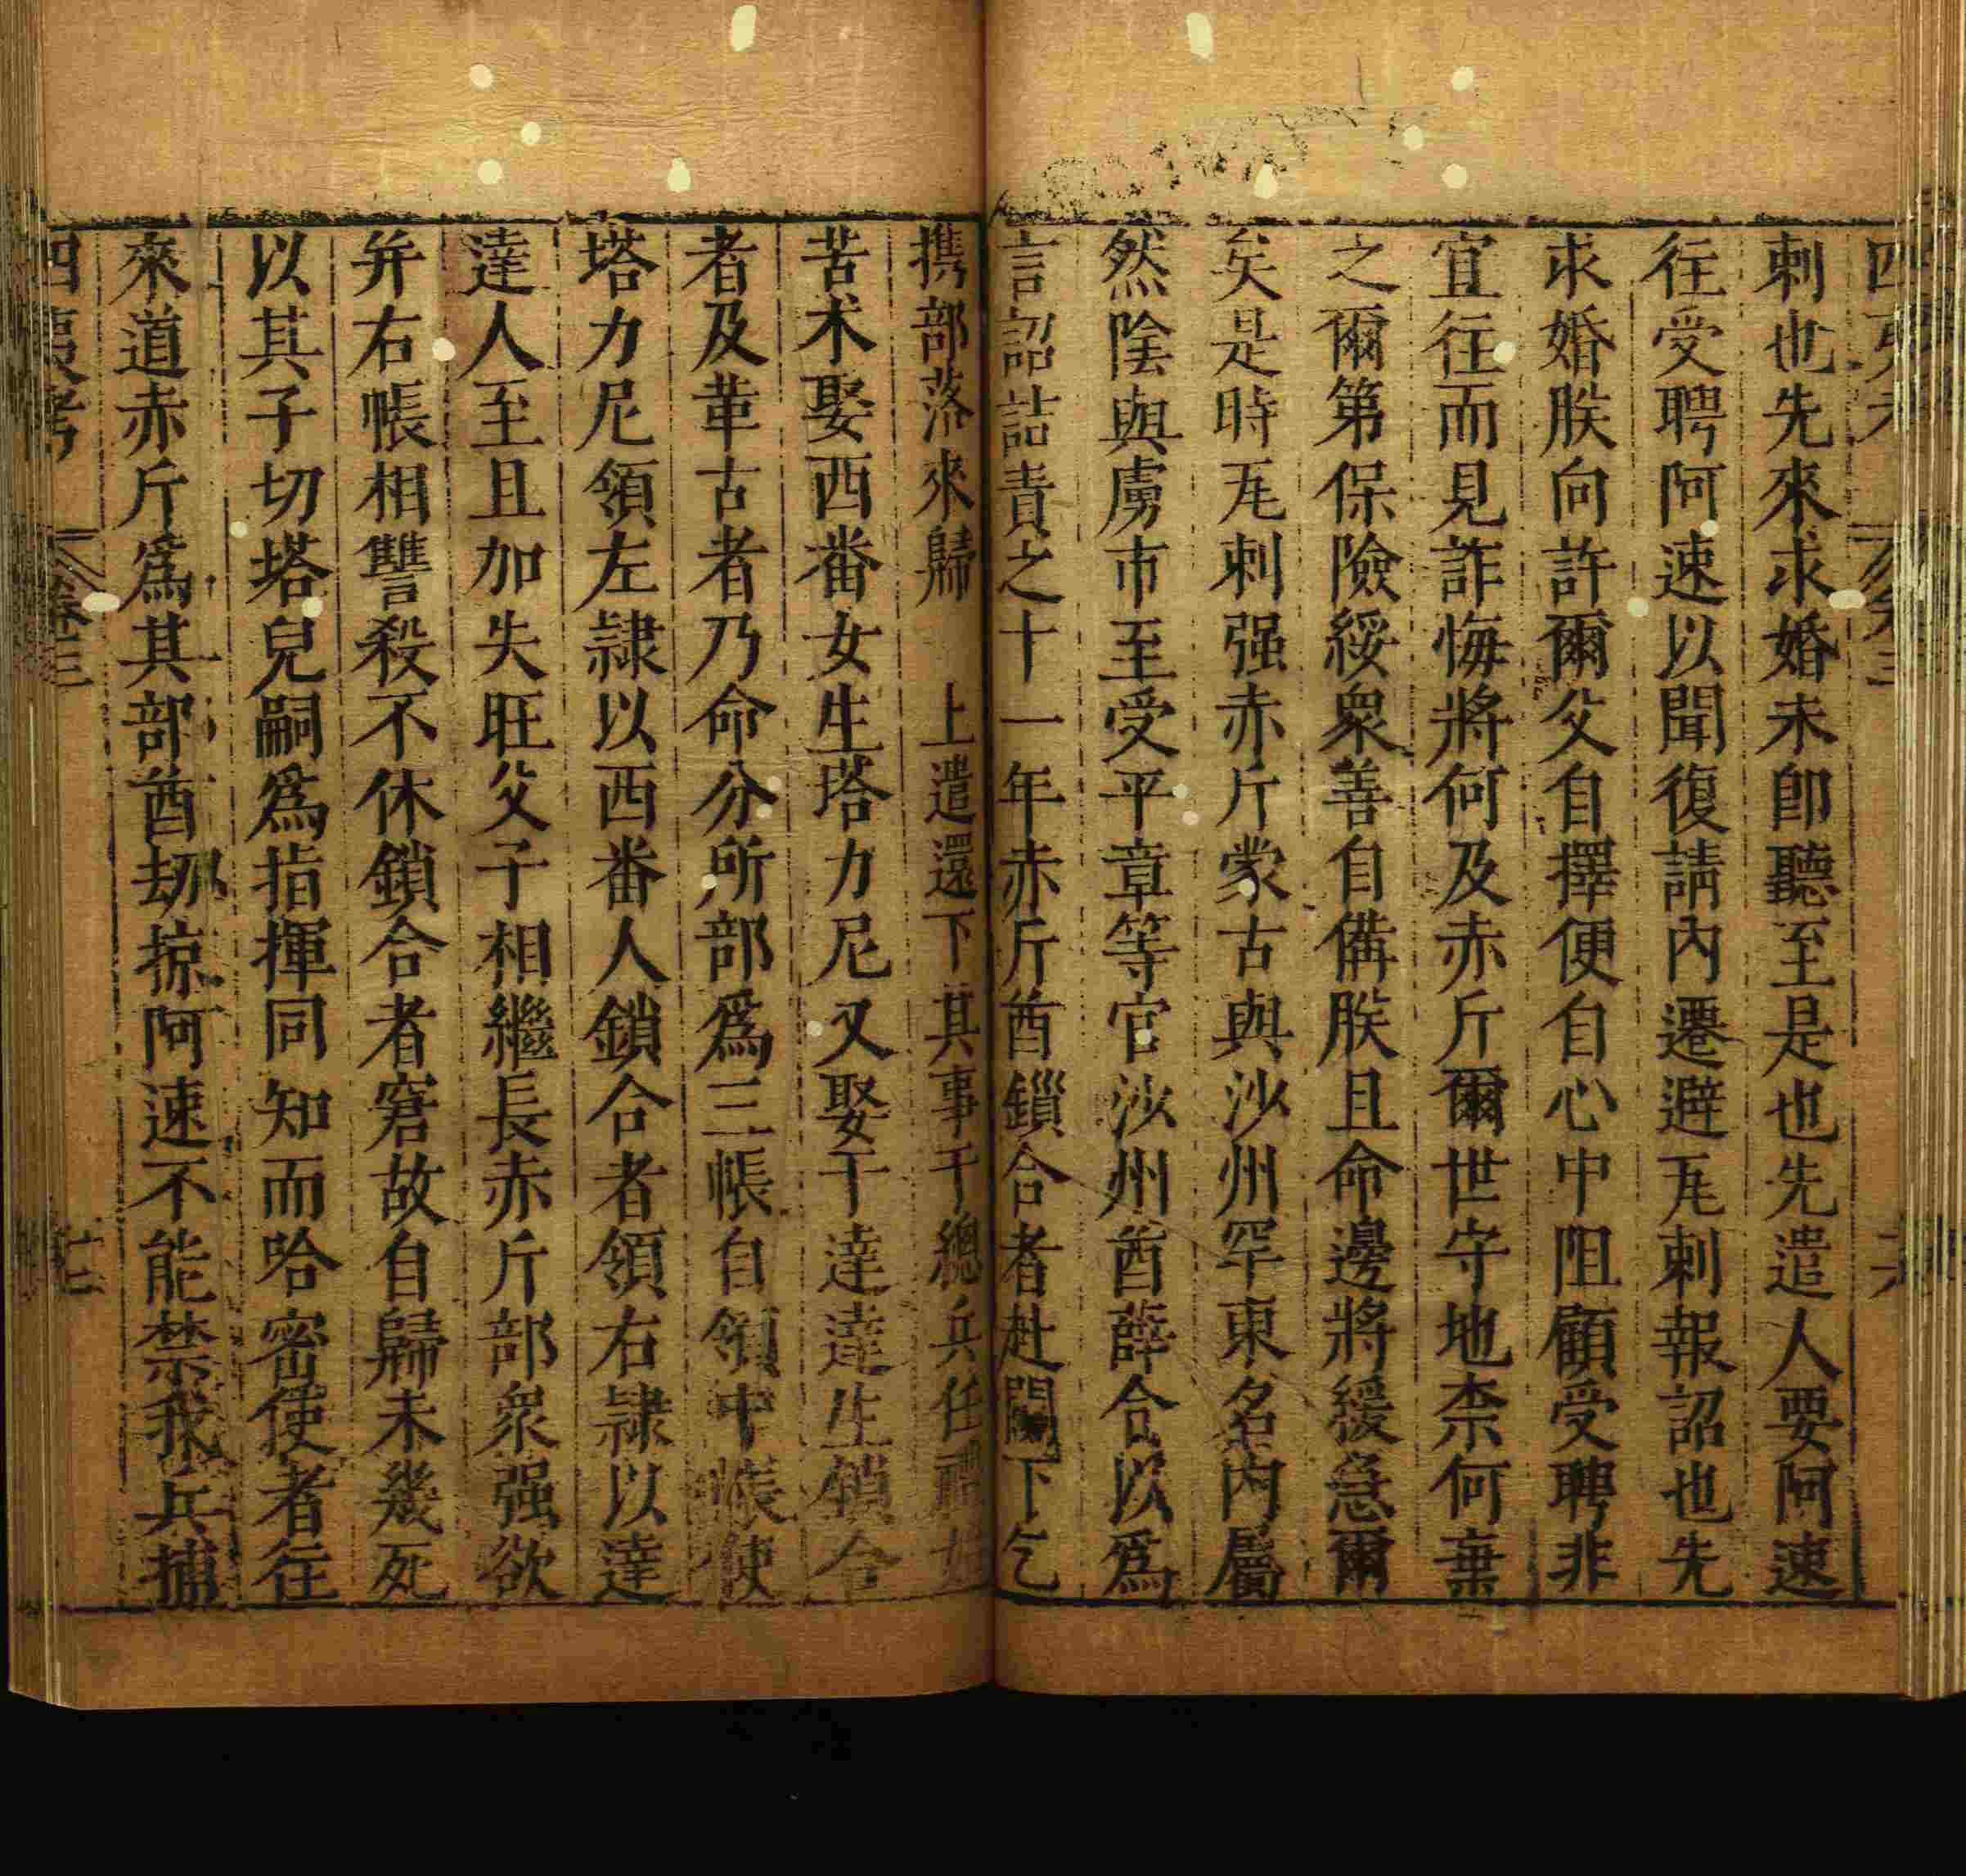 四夷考 卷三 六
剌也先來求婚未卽聽至是也先遣人要阿速
往受聘阿速以聞復請內遷避瓦剌報詔也先
求婚朕向許爾父自擇便自心中阻顧受聘非
宜往而見詐悔將何及赤斤爾世守地柰何棄
之爾第保險綏衆善自備朕且命邊將緩急爾
矣是時瓦剌强赤斤蒙古與沙州罕東名內屬
然陰與虜市至受平章等官沙州酋薛令以爲
言詔詰責之十一年赤斤酋鎻合者赴闕下乞
携部落來歸 上遣還下其事于總兵任禮始
苦术娶西番女生塔力尼又娶于達達生鎖合
者及革古者乃命分所部爲三帳自領中帳使
塔力尼領左隸以西番人鎖合者領右隸以達
達人至且加失旺父子相繼長赤斤部衆强欲
并右帳相讐殺不休鎖合者窘故自歸未幾死
以其子切塔兒嗣爲指揮同知而哈密使者往
來道赤斤爲其部酋刼掠阿速不能禁我兵捕
四夷考 卷三 七